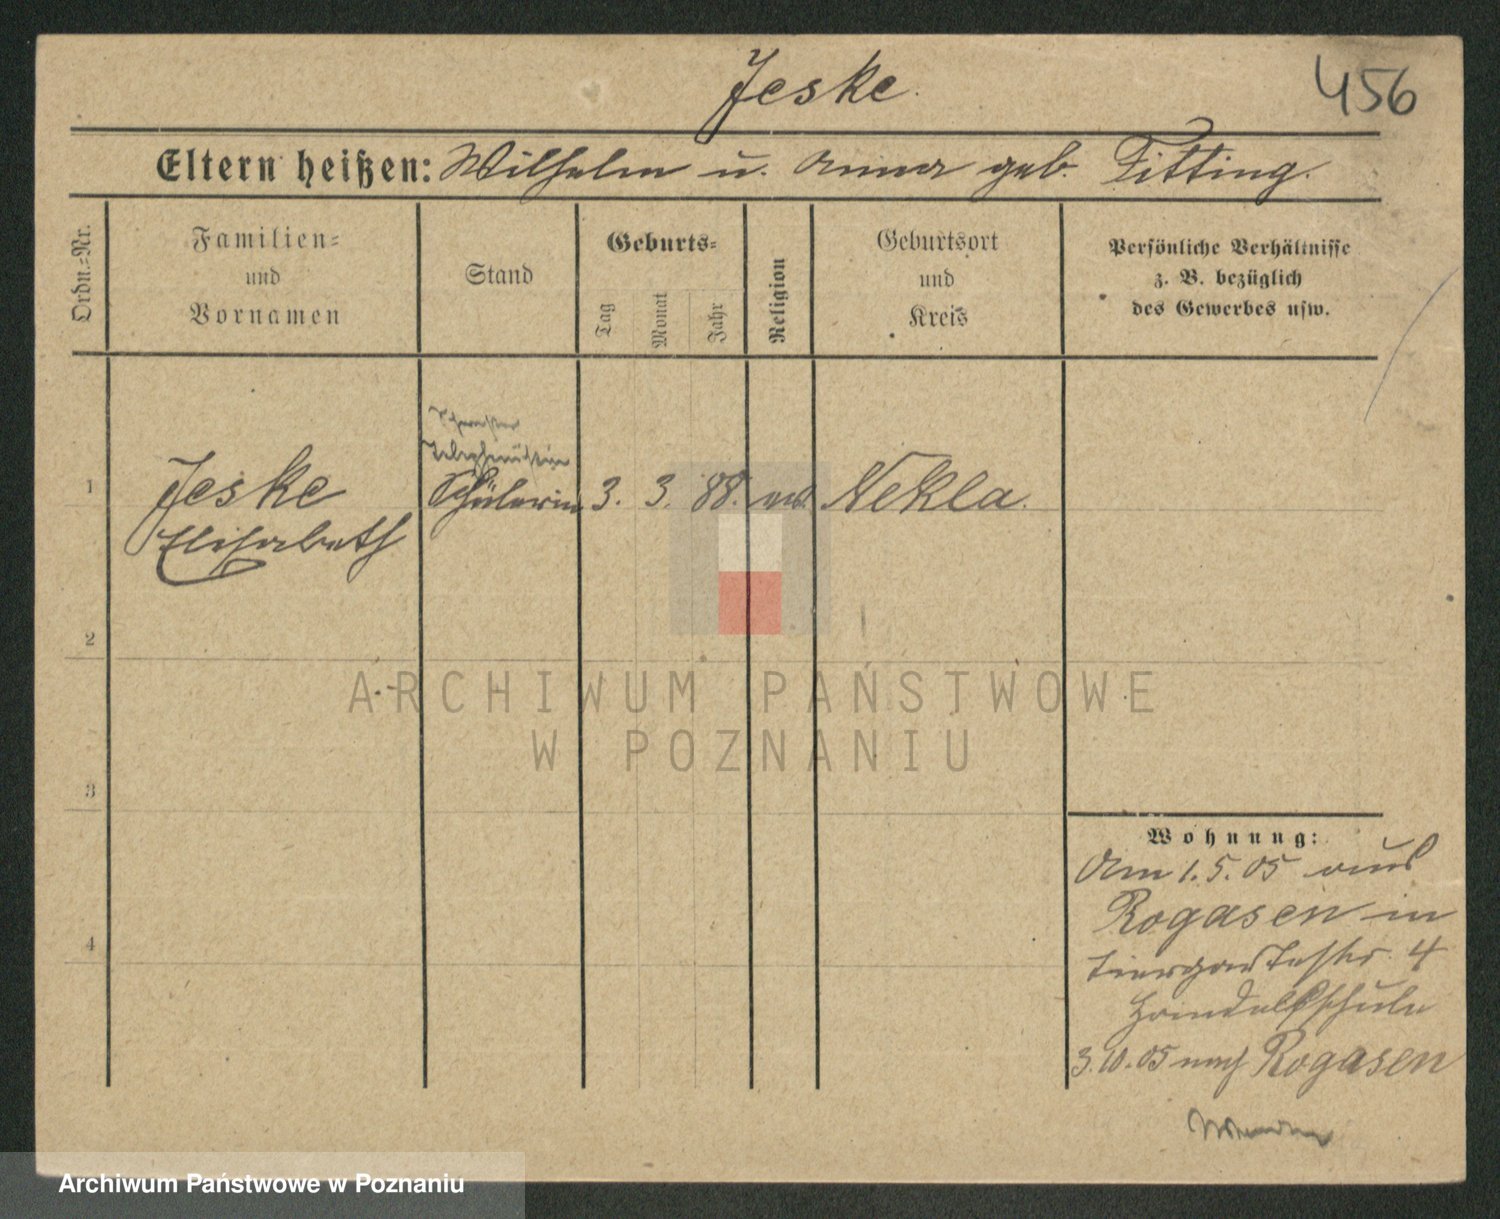 Jeske.
456
Eltern heißen: Wilhelm u. Anna geb. Fitting.
Ordn.=Nr.
Familien=
und
Vornamen
Stand
Geburts=
Tag
Monat
Jahr
Religion
Geburtsort
und
Kreis
Persönliche Verhältnisse
z. B. bezüglich
des Gewerbes usw.
1
Jeske
Elisabeth
Schülerin
3. 3. 88. ev.
Nekla.
2
3
4
ARCHIWUM PAŃSTWOWE
W POZNANIU
Wohnung:
Am 1.5.05 aus
Rogasen in
Tiergartestr. 4
Handelsschule
3.10.05 nach Rogasen
Archiwum Państwowe w Poznaniu